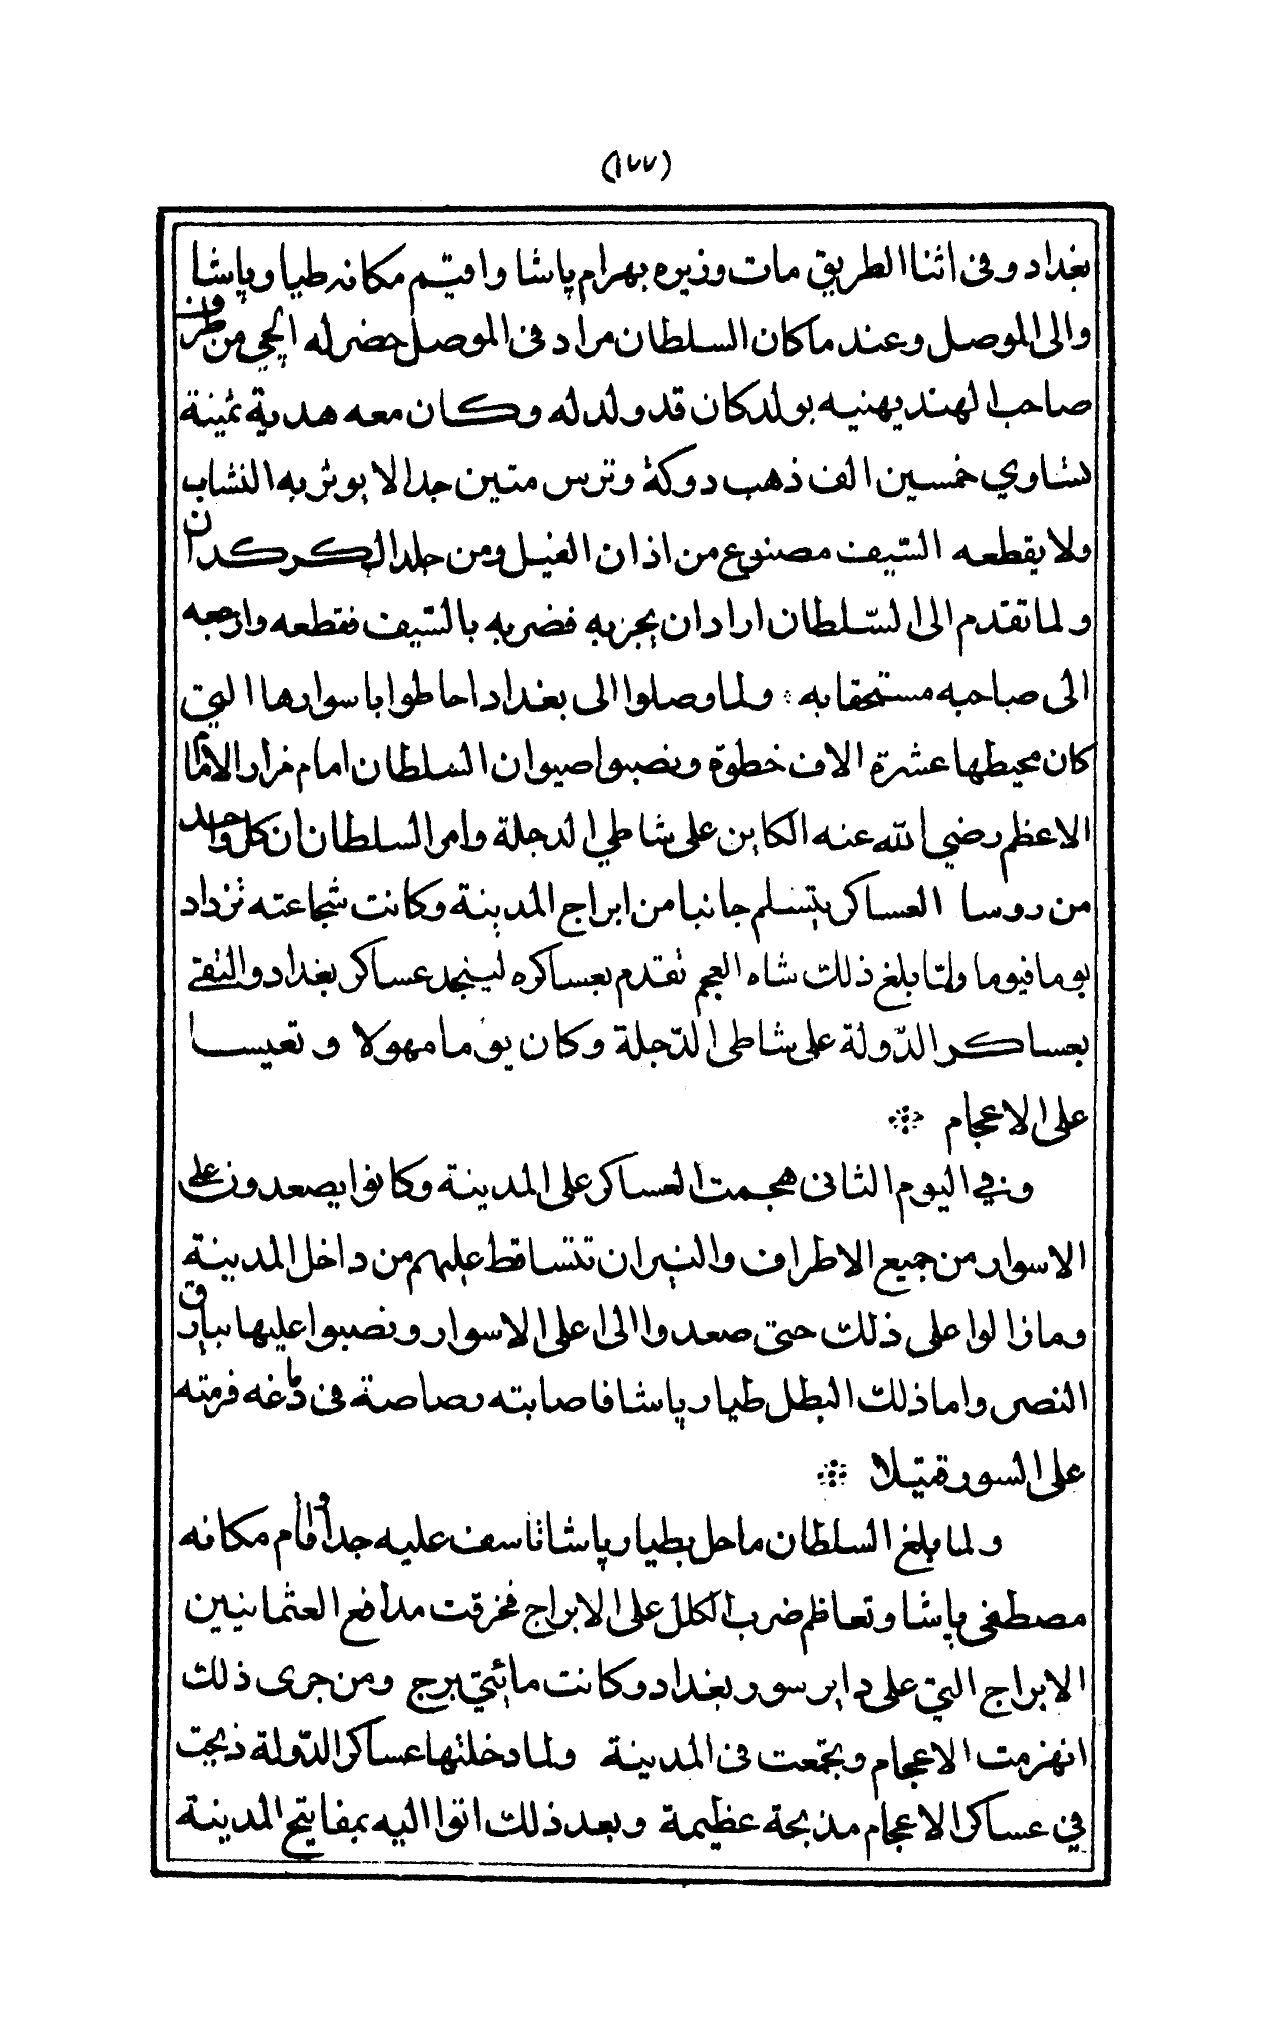 (١٧٧)
بغداد وفى اثنا الطريق مات وزيره بهرام پاشا واقيم مكانه طيار پاشا
والى الموصل وعند ما كان السلطان مراد فى الموصل حضر له ايلچي من طرف
صاحب الهند يهنيه بولد كان قد ولد له وكان معه هدية ثمينة
تساوي خمسين الف ذهب دوكة وترس متين جدا لا يوثر به النشاب
ولا يقطعه السّيف مصنوع من اذان الفيل ومن جلد الكركدان
ولما تقدم الى السّلطان اراد ان يجربه فضربه بالسّيف فقطعه وارجعه
الى صاحبه مستحقا به ولما وصلوا الى بغداد احاطوا باسوارها التي
كان محيطها عشرة الاف خطوة ونصبوا صيوان السلطان امام مزار الامام
الاعظم رضي الله عنه الكاين على شاطي الدجلة وامر السلطان ان كل واحد
من روسا العساكر يتسلم جانبا من ابراج المدينة وكانت شجاعته تزداد
يوما فيوما ولمّا بلغ ذلك شاه العجم تقدم بعساكره لينجد عساكر بغداد والتقى
بعساكر الدّولة على شاطى الدّجلة وكان يوما مهولا وتعيسا
على الاعجام
وفي اليوم الثانى هجمت العساكر على المدينة وكانوا يصعدون على
الاسوار من جميع الاطراف والنيران تتساقط عليهم من داخل المدينة
وما زالوا على ذلك حتى صعدوا الى اعلى الاسوار ونصبوا عليها بيارق
النصر واما ذلك البطل طيار پاشا فاصابته رصاصة فى دماغه فرمته
على السور قتيلا
ولما بلغ السلطان ما حل بطيار پاشا تاسف عليه جدا واقام مكانه
مصطفى پاشا وتعاظم ضرب الكلل على الابراج فخرقت مدافع العثمانيين
الابراج التي على داير سور بغداد وكانت مائتي برج ومن جرى ذلك
انهزمت الاعجام وتجمعت فى المدينة ولما دخلتها عساكر الدّولة ذبحت
في عساكر الاعجام مذبحة عظيمة وبعد ذلك اتوا اليه بمفاتيح المدينة